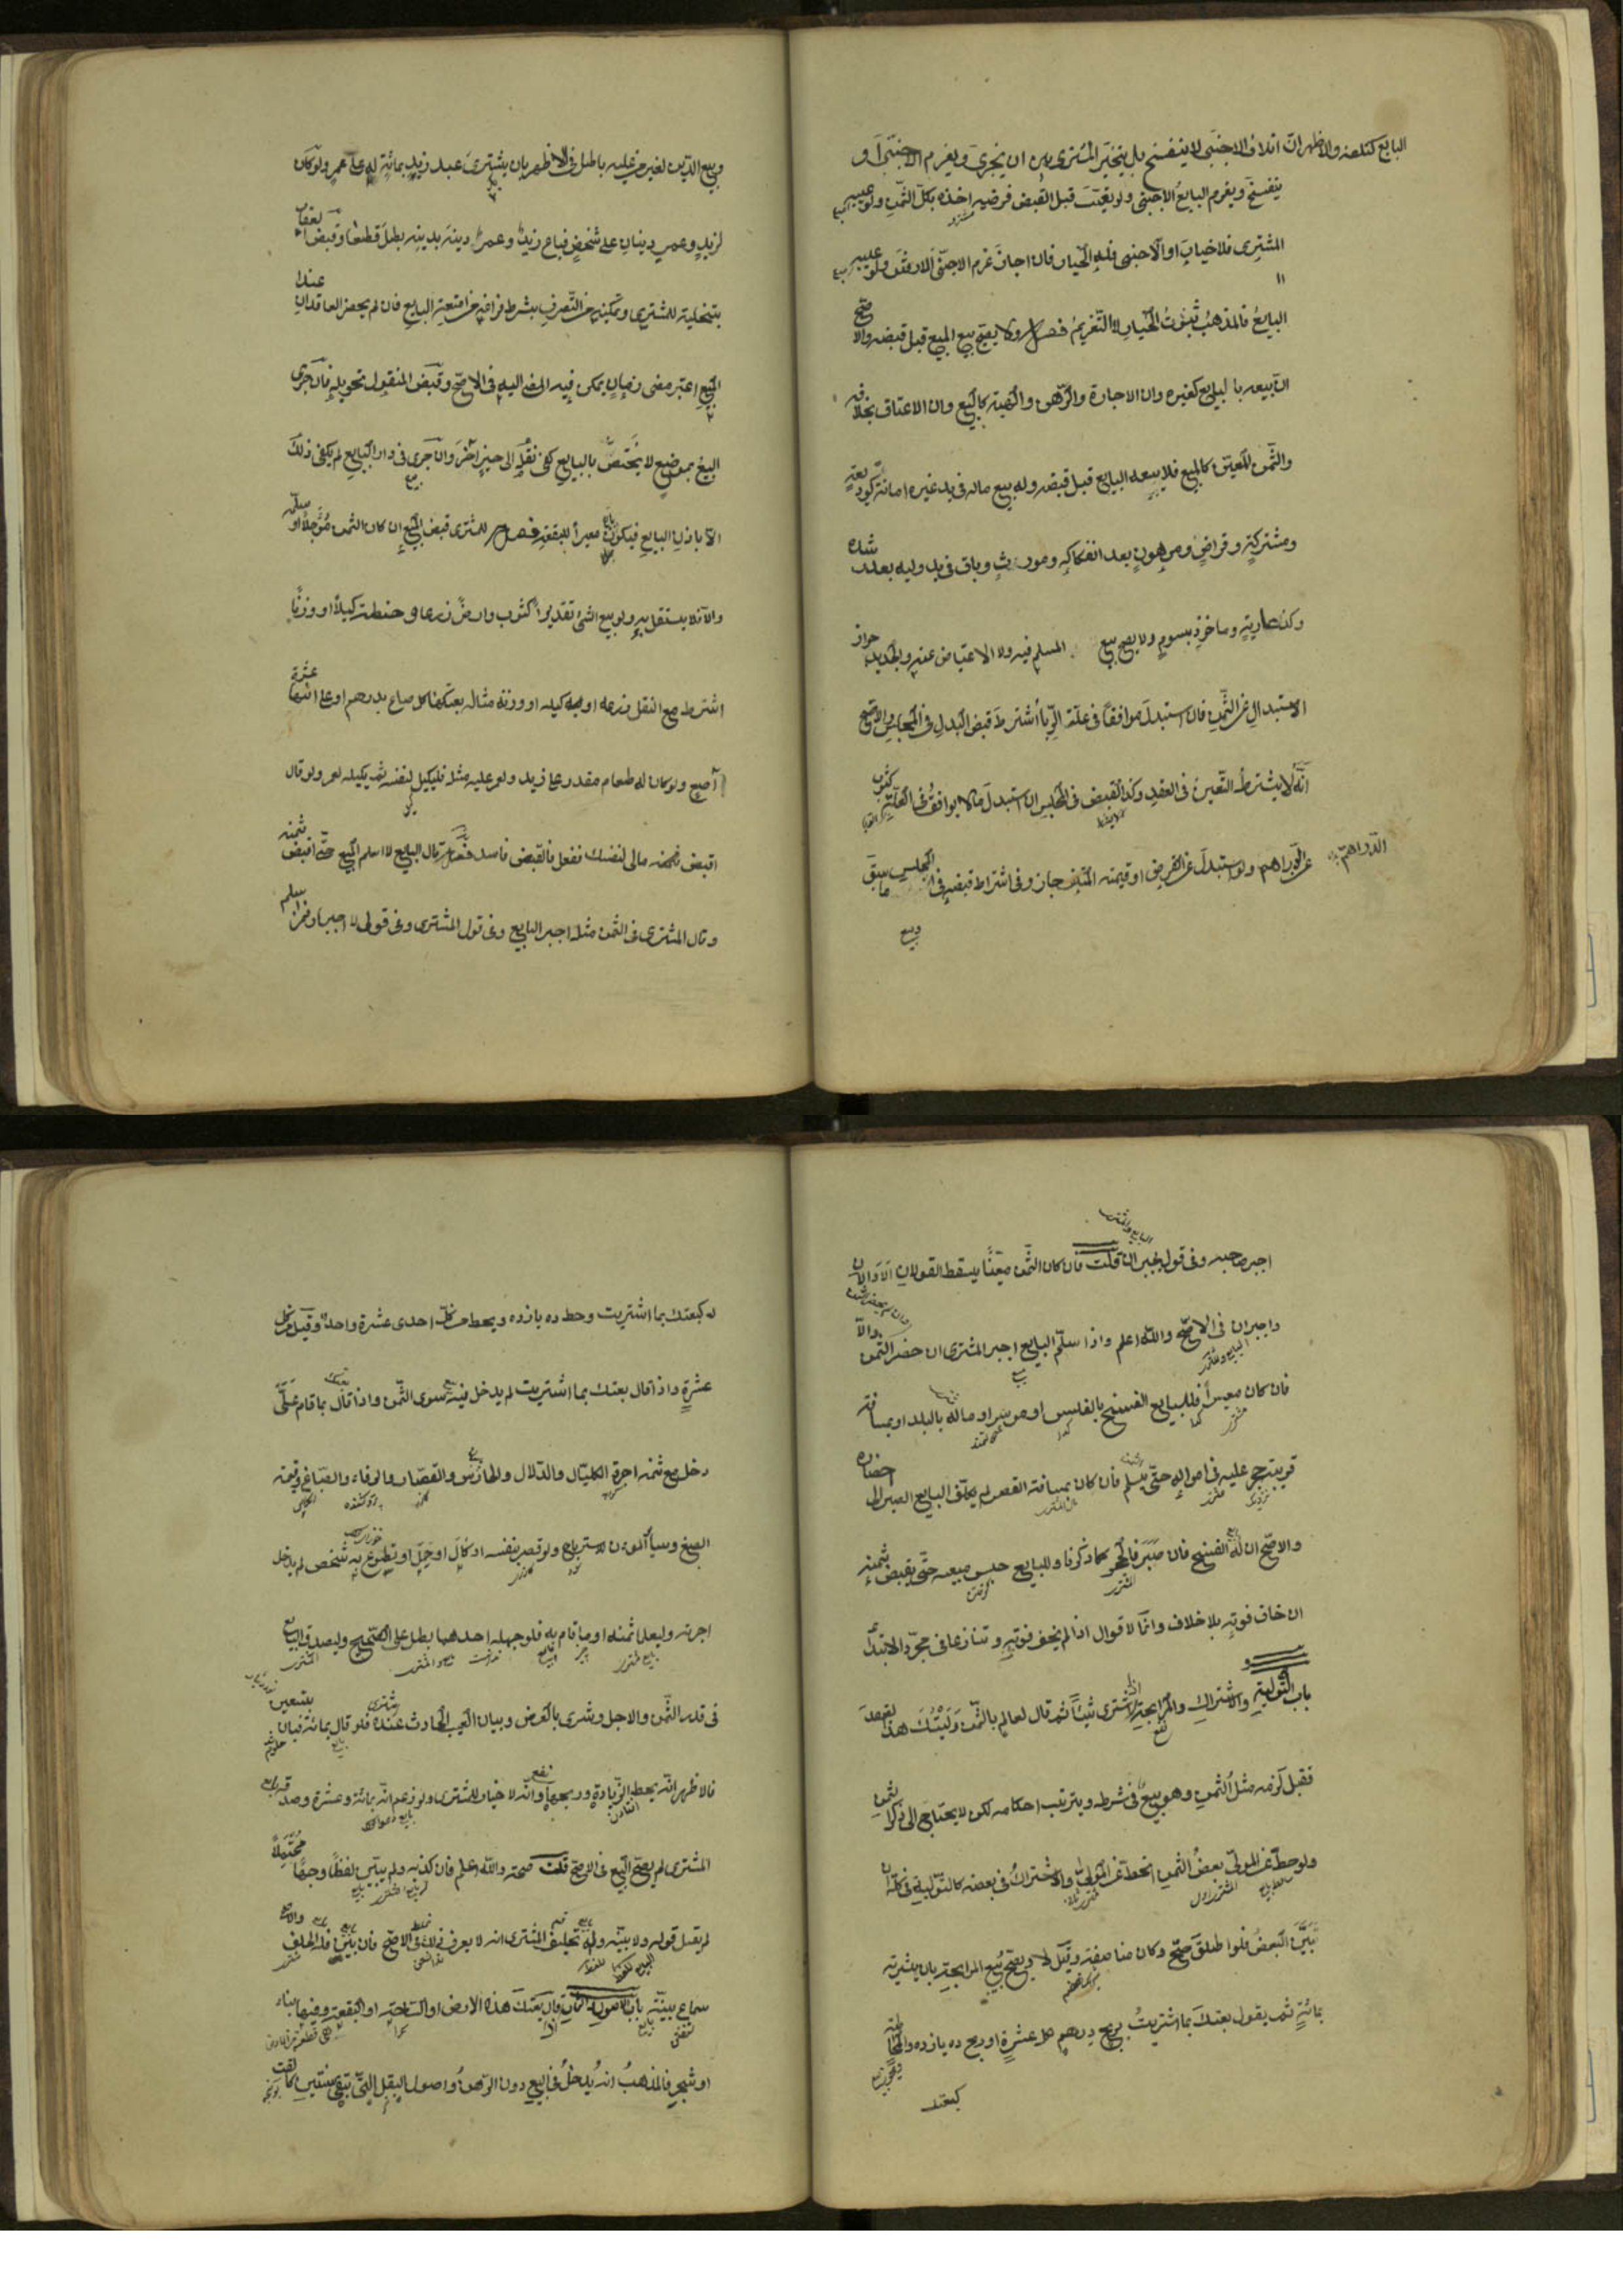 البايع كتلفه والاظهر ان اتلاف الاجنبى لا ينفسخ بل يتخير المشترى بين ان يجيز ويغرم الاجنبى او
يفسخ ويغرم البايع الاجنبى ولو تعيب قبل القبض فرضيه اخذه بكل الثمن ولو عيبه
المشترى فلا خيار او الاجنبى فله الخيار فان اجاز غرم الاجنبى الارش ولو عيبه
البايع فالمذهب ثبوت الخيار لا التغريم فصل ولا يصح بيع المبيع قبل قبضه والاصح
ان بيعه بالبايع كغيره وان الاجارة والرهن والهبة كالبيع وان الاعتاق بخلافه
والثمن المعين كالمبيع فلا يبيعه البايع قبل قبضه وله بيع ماله فى يد غيره امانة كوديعة
ومشتركة وقراض ومرهون بعد انفكاكه وموروث وباق فى يد وليه بعد رشده
وكذا عارية وماخوذ بسوم ولا يصح بيع المسلم فيه ولا الاعتياض عنه والجديد جواز
الاستبدال عن الثمن فان استبدل موافقا فى علة الربا اشترط قبض البدل فى المجلس والاصح
انه لا يشترط التعيين فى العقد وكذا القبض فى المجلس ان استبدل ما لا يوافق فى العلة كثوب
عن الدراهم ولو استبدل عن القرض او قيمة المتلف جاز وفى اشتراط قبضه فى المجلس ما سبق
وبيع
وبيع الدين لغير من عليه باطل فى الاظهر بان يشترى عبد زيد بمائة له على عمرو ولو كان
لزيد وعمرو دينان على شخص فباع زيد عمرا دينه بدينه بطل قطعا وقبض العقار
بتخليته للمشترى وتمكينه من التصرف بشرط فراغه من امتعة البايع فان لم يحضر العاقدان
المبيع اعتبر مضى زمان يمكن فيه المضى اليه فى الاصح وقبض المنقول تحويله فان جرى
البيع بموضع لا يختص بالبايع كفى نقله الى حيز آخر وان جرى فى دار البايع لم يكفى ذلك
الا باذن البايع فيكون معيرا للبقعة فصل للمشترى قبض المبيع ان كان الثمن مؤجلا او سلمه
والا فلا يستقل به ولو بيع الشئ تقديرا كثوب وارض ذرعا وحنطة كيلا او وزنا
اشترط مع النقل ذرعه او كيله او وزنه مثاله بعتكها كل صاع بدرهم او على انها عشرة
آصع ولو كان له طعام مقدر على زيد ولعمرو عليه مثله فليكتل لنفسه ثم يكيله لعمرو ولو قال
اقبض منه مالى لنفسك ففعل فالقبض فاسد فصل قال البايع لا اسلم المبيع حتى اقبض ثمنه
وقال المشترى فى الثمن مثله اجبر البايع وفى قول المشترى وفى قول لا اجبار فمن سلم
اجبر صاحبه وفى قول يجبران قلت فان كان الثمن معينا سقط القولان الاولان
واجبران فى الاصح والله اعلم واذا سلم البايع اجبر المشترى ان حضر الثمن والا
فان كان معسرا فللبايع الفسخ بالفلس او موسرا وماله بالبلد او بمسافة
قريبة حجر عليه فى امواله حتى يسلم فان كان بمسافة القصر لم يكلف البايع الصبر الى احضاره
والاصح ان له الفسخ فان صبر فالحجر كما ذكرنا وللبايع حبس مبيعه حتى يقبض ثمنه
ان خاف فوته بلا خلاف وانما الاقوال اذا لم يخف فوته وتنازعا فى مجرد الابتداء
باب التولية والاشتراك والمرابحة اشترى شيئا ثم قال لعالم بالثمن وليتك هذا العقد
فقبل لزمه مثل الثمن وهو بيع فى شرطه وترتيب احكامه لكن لا يحتاج الى ذكر الثمن
ولو حط عن المولى بعض الثمن انحط عن المولى والاشتراك فى بعضه كالتولية فى كله ان
بين البعض فلو اطلق صح وكان مناصفة وقيل لا ويصح بيع المرابحة بان يشتريه
بمائة ثم يقول بعتك بما اشتريت بربح درهم كل عشرة او ربح ده يازده والمحاطة
كبعتك
له كبعتك بما اشتريت وحط ده يازده ويحط من كل احدى عشرة واحد وقيل من كل
عشرة واذا قال بعتك بما اشتريت لم يدخل فيه سوى الثمن واذا قال بما قام على
دخل مع ثمنه اجرة الكيال والدلال والحارس والقصار والرفاء والصباغ وقيمة
الصبغ وسائر المؤن للاسترباح ولو قصر بنفسه او كال او حمل او تطوع به شخص لم يدخل
اجرته وليعلما ثمنه او ما قام به فلو جهله احدهما بطل على الصحيح وليصدق البايع
فى قدر الثمن والاجل وشرى بالعرض وبيان العيب الحادث عنده فلو قال بمائة فبان بتسعين
فالاظهر انه يحط الزيادة وربحها وانه لا خيار للمشترى ولو زعم انه بمائة وعشرة وصدقه
المشترى لم يصح البيع فى الاصح قلت صحته والله اعلم فان كذبه ولم يبين لغلطه وجها محتملا
لم يقبل قوله ولا بينته وله تحليف المشترى انه لا يعرف ذلك فى الاصح فان بين فله التحليف والاصح
سماع بينته باب الاصول والثمار قال بعتك هذه الارض او الساحة او البقعة وفيها بناء
او شجر فالمذهب انه يدخل فى البيع دون الرهن واصول البقل التى تبقى سنتين كالقت